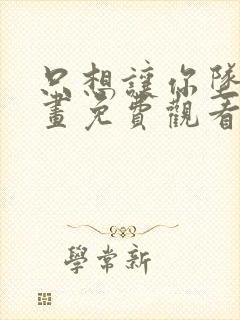 只想讓你墜
畫免費觀看
學常新